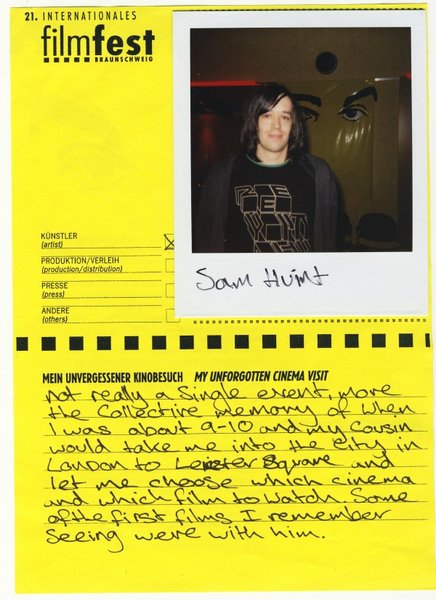 21. INTERNATIONALES
filmfest
BRAUNSCHWEIG
KÜNSTLER
(artist)
PRODUKTION/VERLEIH
(production/distribution)
PRESSE
(press)
ANDERE
(others)
Sam Huint
MEIN UNVERGESSENER KINOBESUCH MY UNFORGOTTEN CINEMA VISIT
not really a single event, more
the collective memory of when
I was about 9-10 and my cousin
would take me into the city in
London to Leister Square and
let me choose which cinema
and which film to watch. Some
of the first films I remember
seeing were with him.